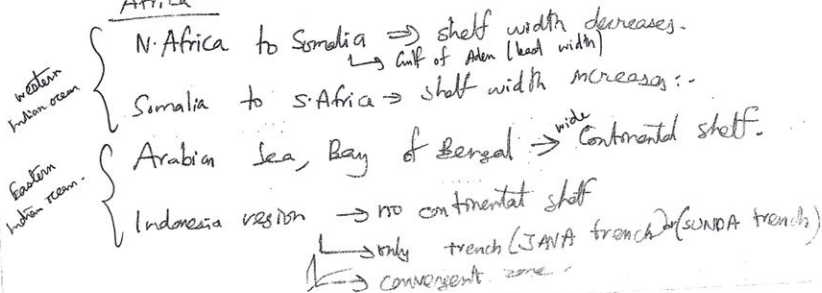 Africa
N. Africa to Somalia ⇒ shelf width decreases.
↳ Gulf of Aden (least width)
western
Indian ocean
Somalia to S. Africa → shelf width increases :-
Eastern
Indian ocean.
Arabian Sea, Bay of Bengal → wide Continental shelf.
Indonesia region → no continental shelf
↳ only trench (JAVA trench) or (SUNDA trench)
↳ convergent zone.